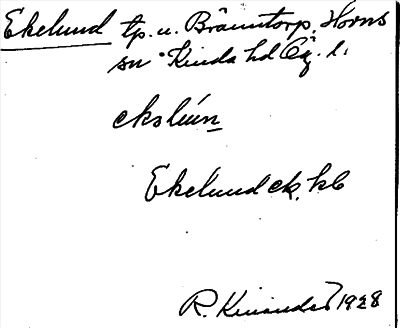 Ekelund tp. u. Bränntorp, Horns
sn Kinda hd Ög. l.
ekslún
Ekelund ek. kb
R. Kinander 1928